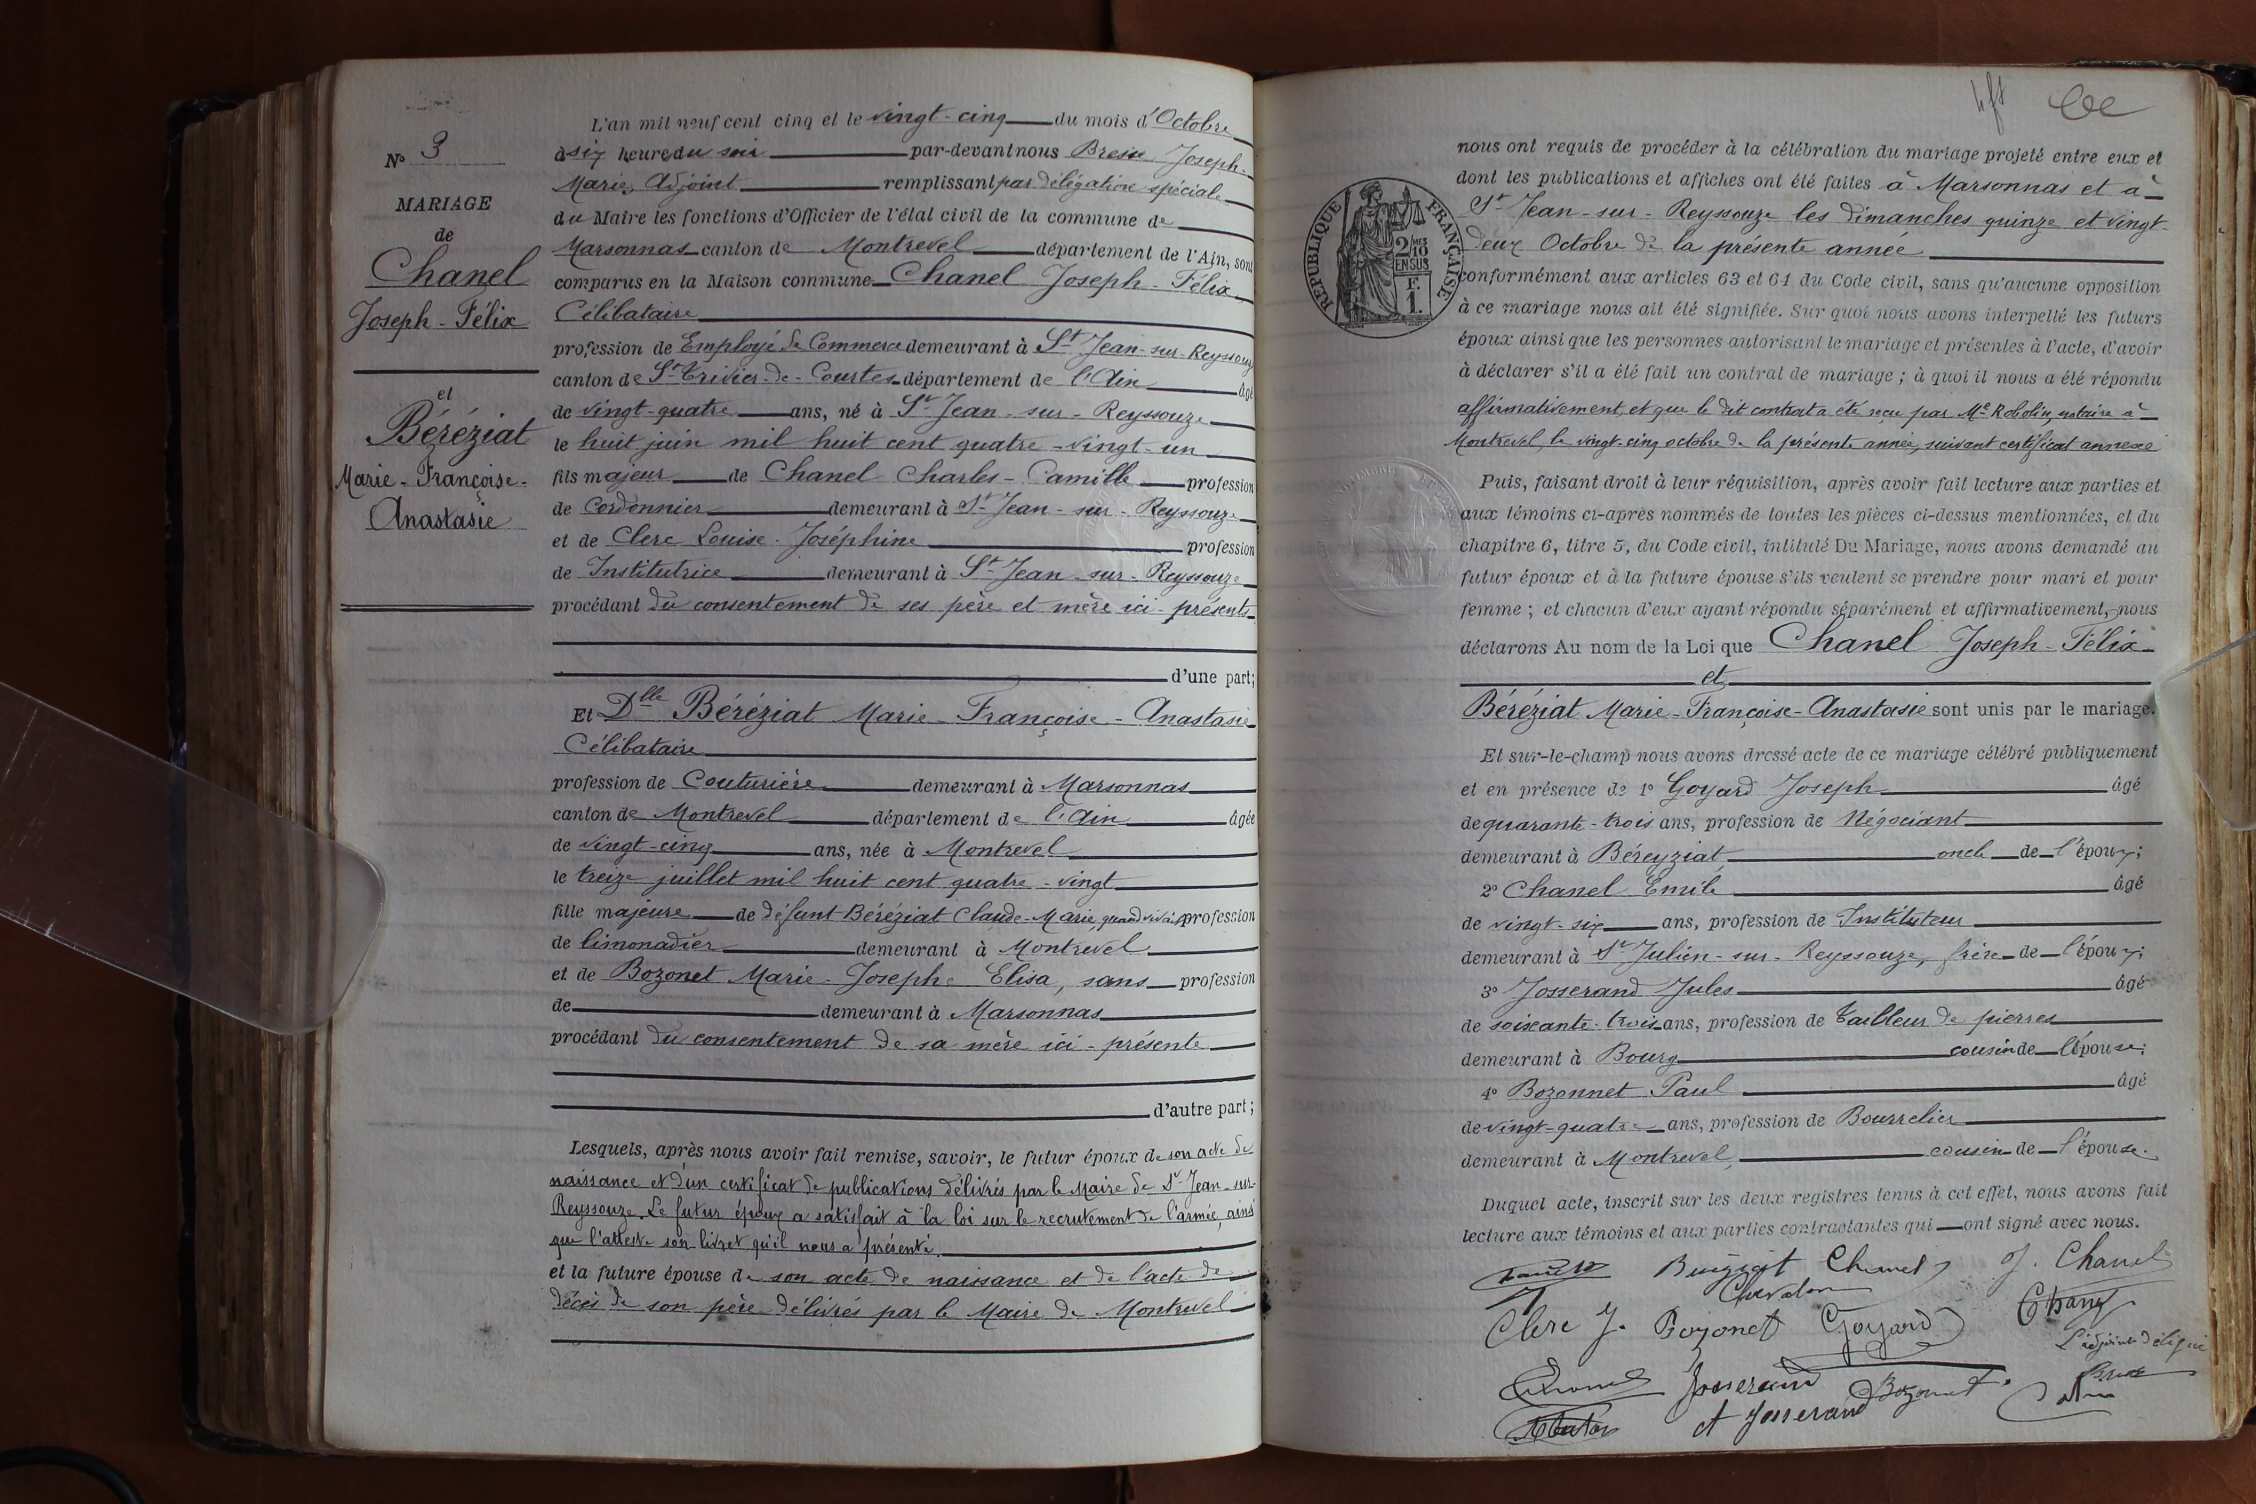 N° 3
MARIAGE
de
Chanel
Joseph-Félix
et
Béréziat
Marie-Françoise-
Anastasie
L'an mil neuf cent cinq et le vingt-cinq du mois d'Octobre
à six heure du soir par-devant nous Joseph-
Marie, Adjoint remplissant par délégation spéciale
du Maire les fonctions d'Officier de l'état civil de la commune de
Marsonnas canton de Montrevel département de l'Ain, sont
comparus en la Maison commune Chanel Joseph-Félix
Célibataire
profession de Employé de Commerce demeurant à St Jean-sur-Reyssouze
canton de St Trivier-de-Courtes département de l'Ain âgé
de vingt-quatre ans, né à St Jean-sur-Reyssouze
le huit juin mil huit cent quatre-vingt-un
fils majeur de Chanel Charles-Camille profession
de Cordonnier demeurant à St Jean-sur-Reyssouze
et de Clerc Louise-Joséphine profession
de Institutrice demeurant à St Jean-sur-Reyssouze
procédant du consentement de ses père et mère ici-présents
d'une part;
Et Dlle Béréziat Marie-Françoise-Anastasie
Célibataire
profession de Couturière demeurant à Marsonnas
canton de Montrevel département de l'Ain âgée
de vingt-cinq ans, née à Montrevel
le treize juillet mil huit cent quatre-vingt
fille majeure de défunt Béréziat Claude-Marie, quand vivait profession
de limonadier demeurant à Montrevel
et de Bozonet Marie-Josephe Elisa, sans profession
de demeurant à Marsonnas
procédant du consentement de sa mère ici-présente
d'autre part;
Lesquels, après nous avoir fait remise, savoir, le futur époux de son acte de
naissance et d'un certificat de publications délivrés par le Maire de St-Jean-sur-
Reyssouze. Le futur époux a satisfait à la loi sur le recrutement de l'armée, ainsi
que l'atteste son livret qu'il nous a présenté.
et la future épouse de son acte de naissance et de l'acte de
décès de son père délivrés par le Maire de Montrevel
nous ont requis de procéder à la célébration du mariage projeté entre eux et
dont les publications et affiches ont été faites à Marsonnas et à
St Jean-sur-Reyssouze les dimanches quinze et vingt-
deux Octobre de la présente année
conformément aux articles 63 et 64 du Code civil, sans qu'aucune opposition
à ce mariage nous ait été signifiée. Sur quoi nous avons interpellé les futurs
époux ainsi que les personnes autorisant le mariage et présentes à l'acte, d'avoir
à déclarer s'il a été fait un contrat de mariage ; à quoi il nous a été répondu
affirmativement, et que le dit contrat a été reçu par Me Robolin, notaire à
Montrevel, le vingt-cinq octobre de la présente année, suivant certificat annexé
RÉPUBLIQUE FRANÇAISE
2/10MES
EN SUS
F.
1.
Puis, faisant droit à leur réquisition, après avoir fait lecture aux parties et
aux témoins ci-après nommés de toutes les pièces ci-dessus mentionnées, et du
chapitre 6, titre 5, du Code civil, intitulé Du Mariage, nous avons demandé au
futur époux et à la future épouse s'ils veulent se prendre pour mari et pour
femme ; et chacun d'eux ayant répondu séparément et affirmativement, nous
déclarons Au nom de la Loi que Chanel Joseph-Félix
et
Béréziat Marie-Françoise-Anastasie sont unis par le mariage.
Et sur-le-champ nous avons dressé acte de ce mariage célébré publiquement
et en présence de 1° Goyard Joseph âgé
de quarante-trois ans, profession de Négociant
demeurant à Béreyziat oncle de l'époux;
2° Chanel Emile âgé
de vingt-six ans, profession de Instituteur
demeurant à St Julien-sur-Reyssouze, frère de l'époux;
3° Josserand Jules âgé
de soixante-trois ans, profession de Tailleur de pierres
demeurant à Bourg cousin de l'épouse;
4° Bozonnet Paul âgé
de vingt-quatre ans, profession de Bourrelier
demeurant à Montrevel, cousin de l'épouse.
Duquel acte, inscrit sur les deux registres tenus à cet effet, nous avons fait
lecture aux témoins et aux parties contractantes qui ont signé avec nous.
Chanel J. Chanel
Clerc J. Bozonet Goyard
L'adjoint délégué
Josserand Bozonnet
Josserand